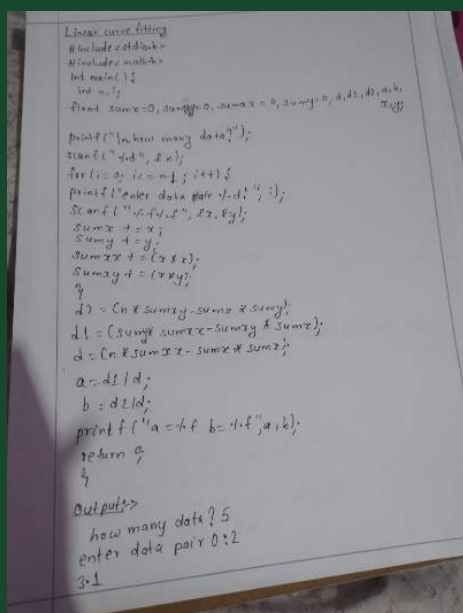 Linear curve fitting
#include<stdio.h>
#include<math.h>
int main(){
int n,i;
float sumx=0, sumxy=0, sumxx=0, sumy=0, d, d1, d2, a, b,
x,y;
printf("\n how many data?");
scanf("%d", &n);
for(i=0; i<=n-1; i++){
printf("enter data pair %d:", i);
scanf("%f%f", &x, &y);
sumx += x;
sumy += y;
sumxx += (x*x);
sumxy += (x*y);
}
d2 = (n * sumxy - sumx * sumy);
d1 = (sumy * sumxx - sumxy * sumx);
d = (n * sumxx - sumx * sumx);
a = d1/d;
b = d2/d;
printf("a=%f b=%f", a, b);
return 0;
}
Output:->
how many data? 5
enter data pair 0:2
3.1